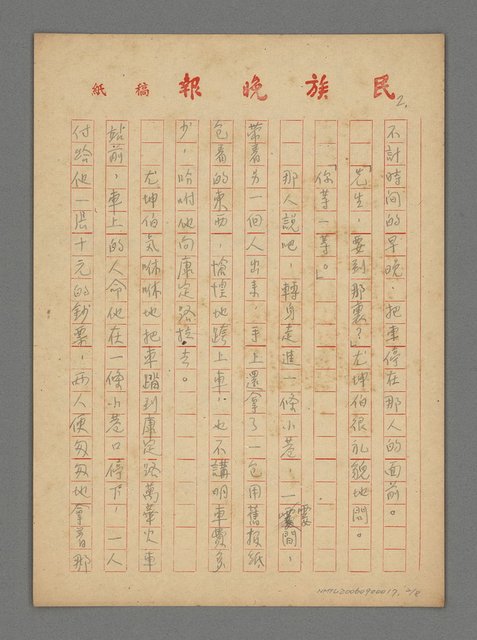 民族晚報 稿紙
2.
不計時間的早晚，把車停在那人的面前。
「先生，要到那裏？」尤坤伯很礼貌地問。
「你等一等。」
那人說吧，轉身走進一條小巷，一霎間，
帶着另一個人出來，手上還拿了一包用舊报紙
包着的東西，惶地跨上車，也不講明車費多
少，吩咐他向康定路拉去。
尤坤伯气咻咻地把車踏到康定路萬華火車
站前，車上的人命他在一條小巷口停下，一人
付給他一張十元的鈔票，兩人便匆匆地拿着那
NMTL20060900017, 2/8